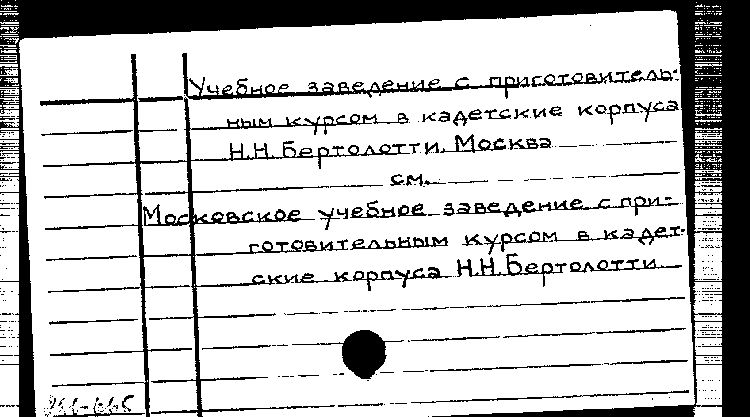 Учебное заведение с приготовитель-
ным курсом в кадетские корпуса
Н.Н. Бертолотти. Москва
см.
Московское учебное заведение с при-
готовительным курсом в кадет-
ские корпуса Н.Н. Бертолотти